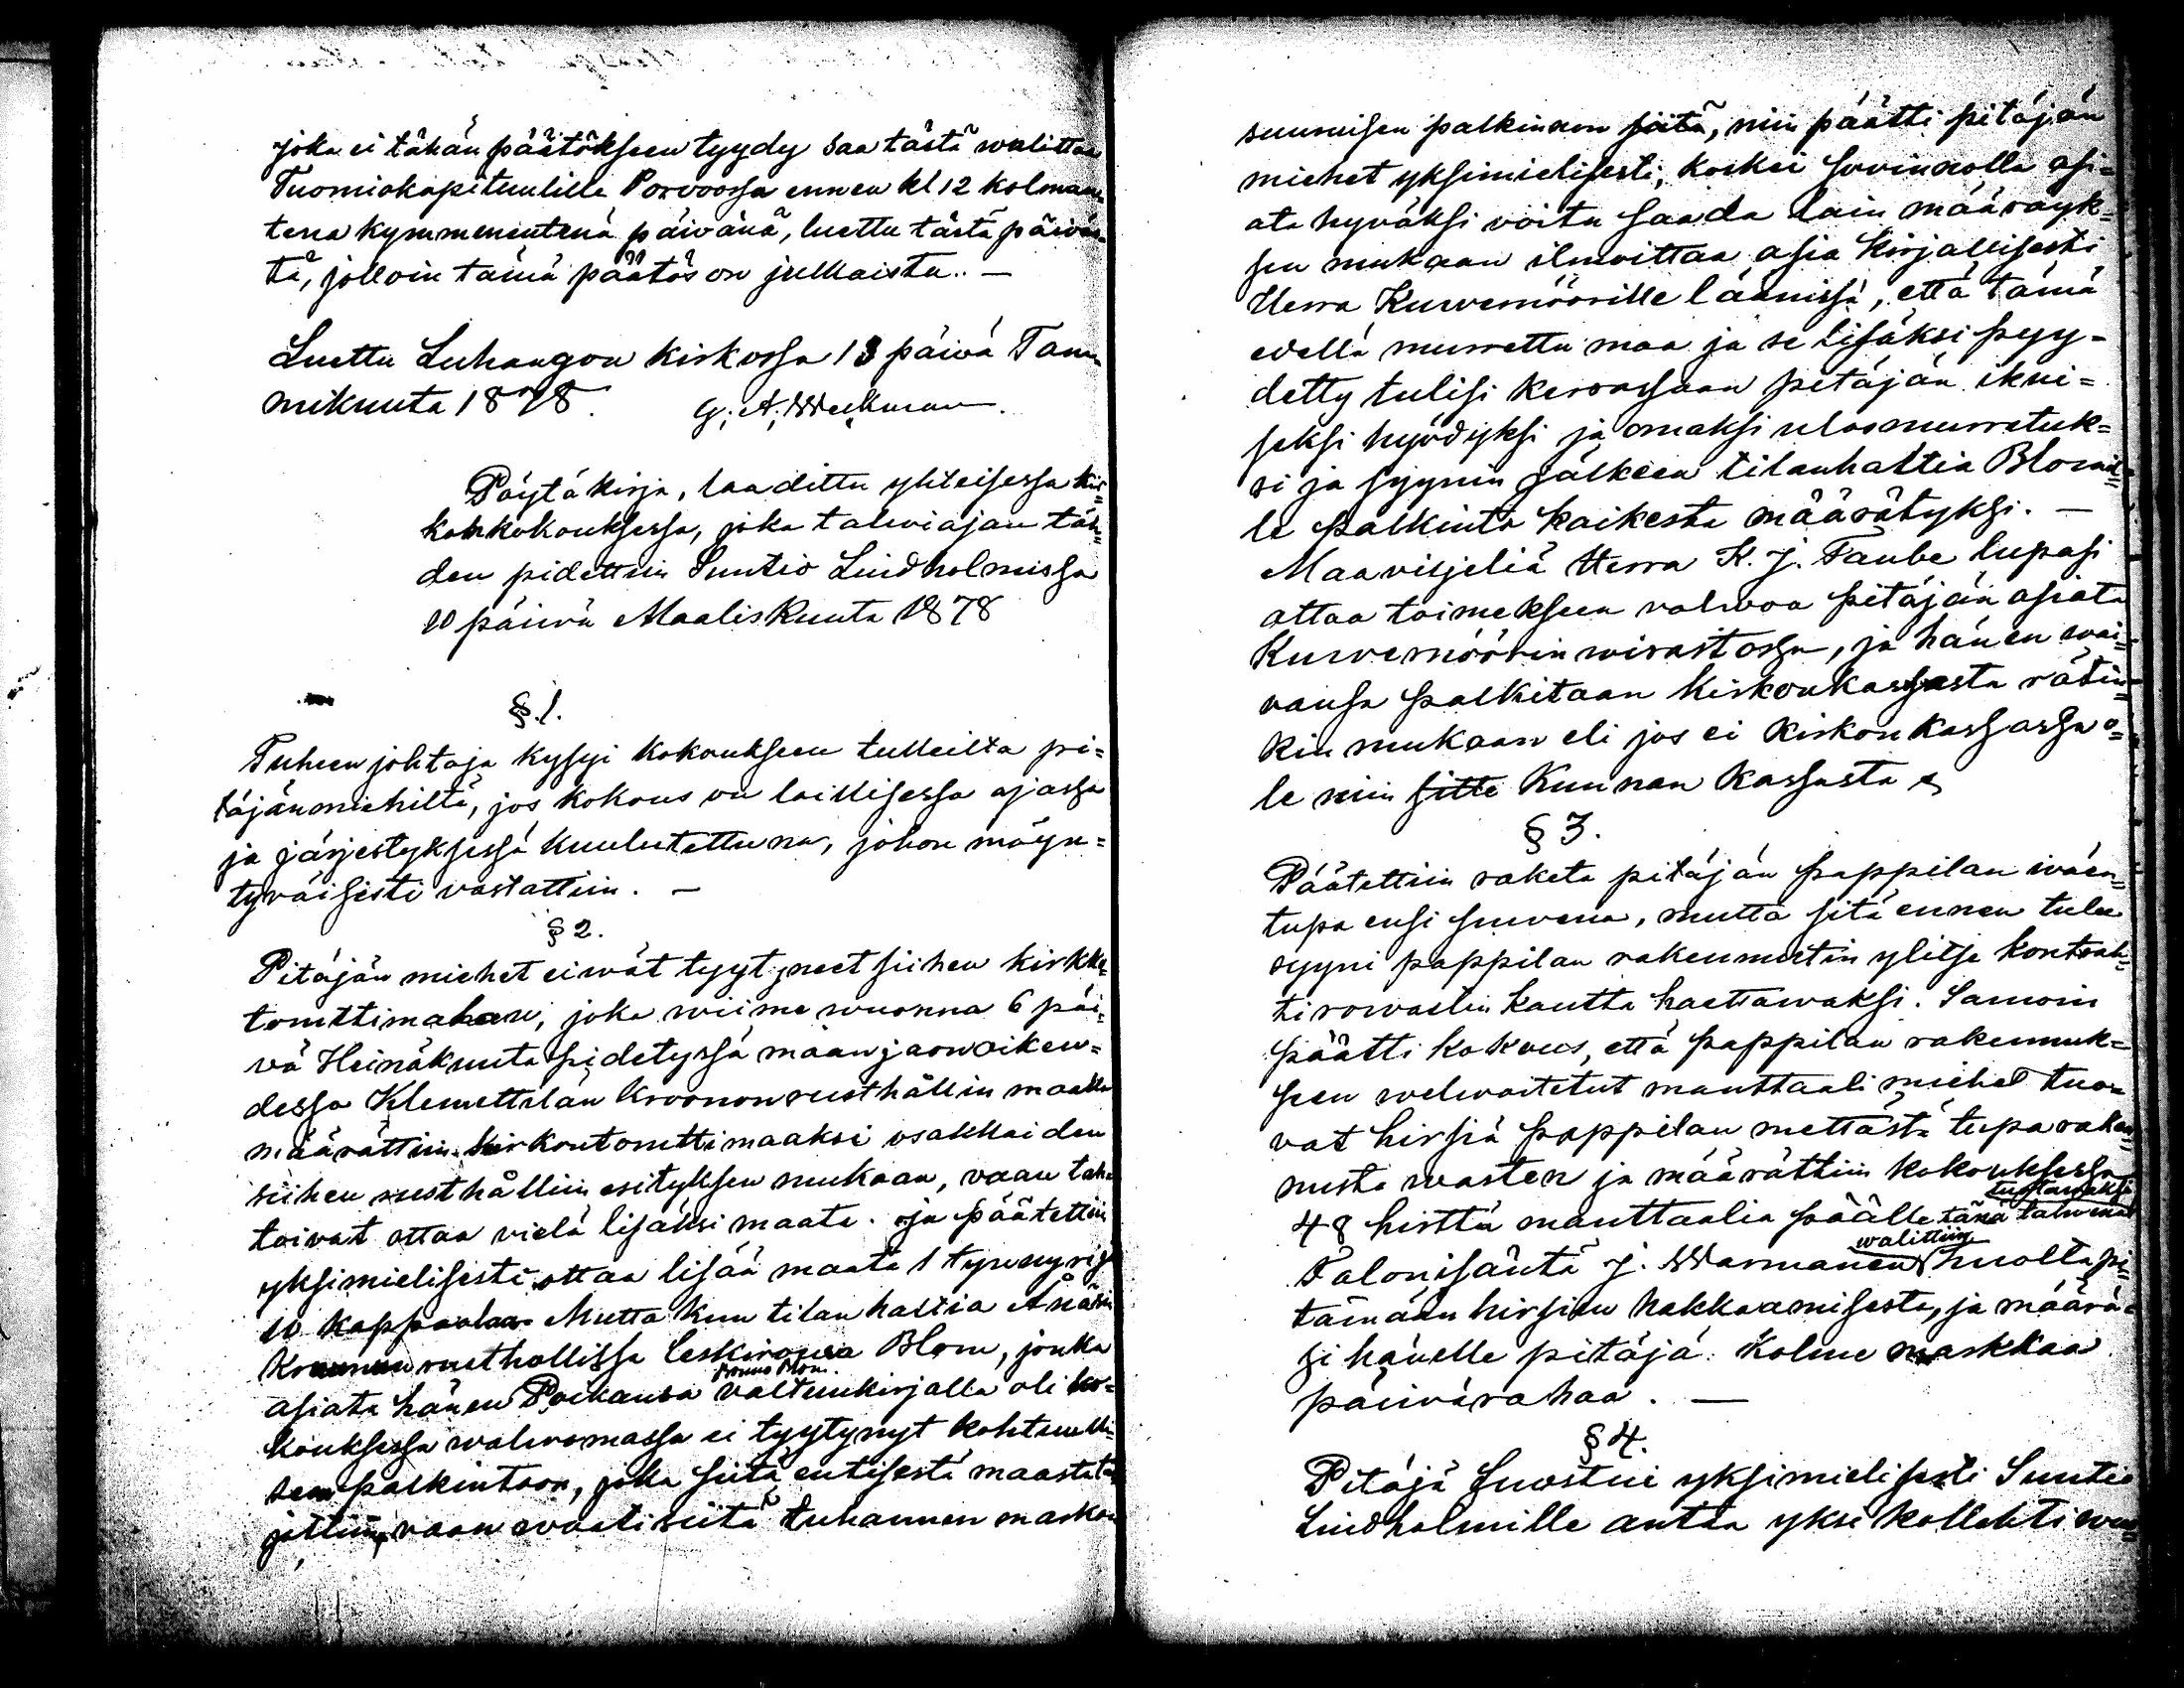 joka ei tähän päätökseen tyydy saa tästä walittaa
Tuomiokapituulille Porvoossa ennen kl 12 kolman
tena kymmenentenä päivänä, luettu tästä päiväs
tä, jolloin tämä päätös on julkaistu. —
Luettu Luhangon kirkossa 13 päivä Tam
mikuuta 1878. G. A. Weckman.
Pöytäkirja, laadittu yhteisessä kir
konkokouksessa, joka talwiajan täh
den pidettiin Suntio Lindholmissa
10 päivä Maaliskuuta 1878
§. 1.
Puheenjohtaja kysyi kokoukseen tulleilta pi=
täjänmiehiltä, jos kokous on laillisessa ajassa
ja järjestyksessä kuulutettuna, johon myön=
tyväisesti vastattiin. —
§ 2.
Pitäjän miehet eiwät tyytyneet siihen kirkko
tomttimahan, joka wiime wuonna 6 päi=
vä Heinäkuuta pidetyssä maanjaon oikeu=
dessa Klemettilän kroononrusthållin maalla
määrättiin kirkontomttimaaksi osakkaiden
siihen rusthållim esityksen mukaan, vaan tah
toivat ottaa vielä lisäksi maata. ja päätettiin
yksimielisesti ottaa lisää maata 1 tynnyri ja
10 kappaalaa Mutta kun tilan haltia
rusthollissa leskirouva Blom, jonka
asiata hänen Poikansa Blom. valtuukirjalla oli ko=
kouksessa walwomassa ei tyytynyt kohtuulli
sen palkintoon, joka siitä entisestä maasta
jottiin, vaan waati siitä tuhannen markan
suuruisen palkinnon siitä, niin päätti pitäjän
miehet yksimielisesti, koskei sovinnolla asi=
ata hyväksi voitu saada lain määräyk=
sen mukaan ilmoittaa asia kirjallisesti
Herra Kuvernöörille läänissä, että tämä
edellä murrettu maa ja se lisäksi pyy=
detty tulisi kerrassaan pitäjän ikui=
seksi hyödyksi ja omaksi ulosmurretuk=
si ja syynin jälkeen tilanhaltia Blomil
le palkinto kaikesta määrätyksi. —
Maaviljeliä Herra K. J. Taube lupasi
ottaa toimekseen valwoa pitäjän asiata
Kuvernöörinwirastossa, ja hänen wai=
vansa palkitaan kirkonkassasta rätin=
kin mukaan eli jos ei kirkon kassassa o=
le niin sitte Kunnan kassasta
§ 3.
Päätettiin raketa pitäjän pappilan wäen=
tupa ensi suvena, mutta sitä ennen tulee
syyni pappilan rakennuttin ylitse kontrah
tirovastin kautta haettawaksi. Samoin
päätti kokous, että pappilan rakennuk=
seen velwoitetut manttaali miehet tuo=
vat hirsiä pappilan mettästä tupa raken
nusta warten ja määrättiin kokouksessa
48 hirttä manttaalia päälle tuotawaksi tänä talwena
Talonisäntä J. Warmanen walittiin huolta pi=
tämään hirsien hakkaamisesta, ja määrä=
si hänelle pitäjä kolme markkaa
päivärahaa. —
§ 4.
Pitäjä suostui yksimielisesti Suntio
Lindholmille antaa yksi kollehti